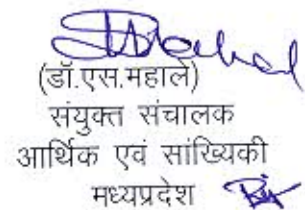 (डॉ.एस.महाले)
संयुक्त संचालक
आर्थिक एवं सांख्यिकी
मध्यप्रदेश